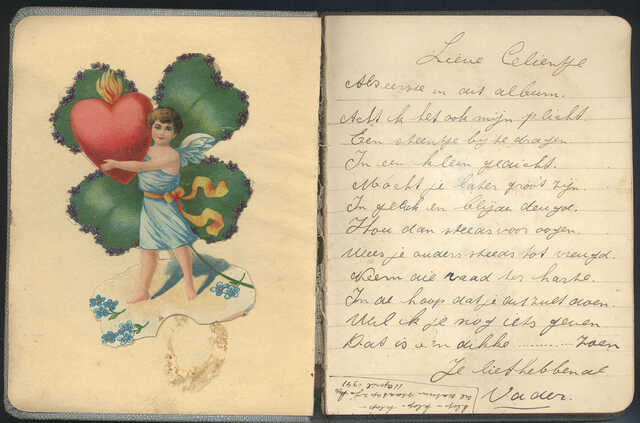 Lieve Celientje
Als eerste in dit album.
Acht ik het ook mijn plicht
Een steentje bij te dragen
In een kleen gedicht.
Mocht je later groot zijn
In geluk en blijde deugd.
Hou dan steeds voor oogen.
Wees je ouders steeds tot vreugd.
Neem die raad ter harte.
In de hoop dat je dit zult doen
Wil ik je nog iets geven
Dat is een dikke .......... zoen
Je liefhebbende
Vader.
klep - klep - klep -
de datum staat op je
11 april 1941